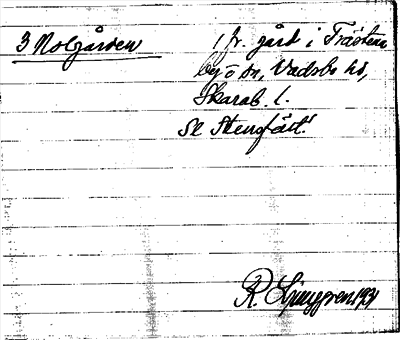 3 Nolgården 1 fr. gård i Trästena
by o sn, Vadsbo hd,
Skarab. l.
Se Stensfält!
R. Ljunggren 1931